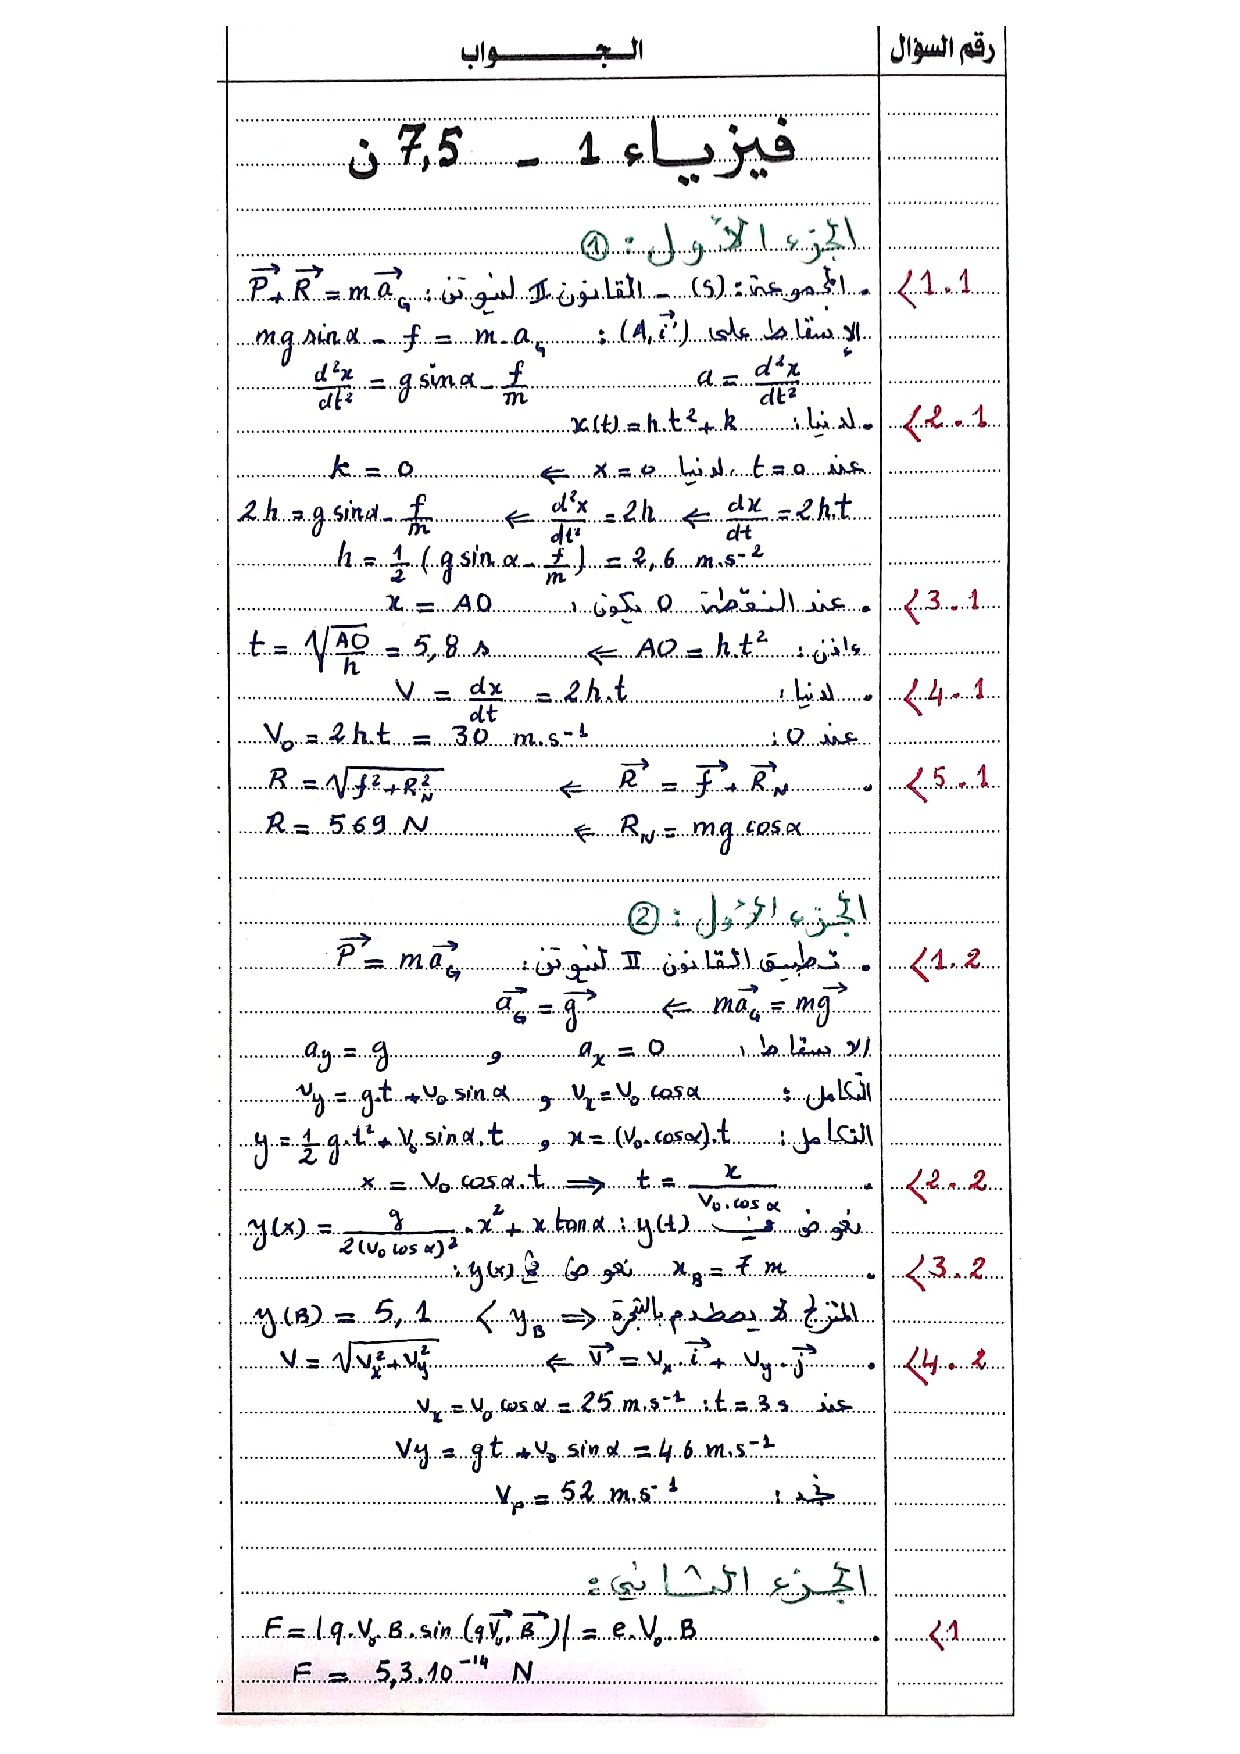 رقم السؤال الجـــــواب
فيزياء 1 - 7,5 ن
الجزء الأول: ①
1.1> . المجموعة: (S) - القانون II لنيوتن: P⃗ + R⃗ = m a⃗_G
الإسقاط على (A, i⃗): mg sinα - f = m.a_G
a = d²x/dt² d²x/dt² = g sinα - f/m
2.1> . لدينا: x(t) = h.t² + k
عند t = 0 ، لدينا x = 0 ⇐ k = 0
dx/dt = 2h.t ⇐ d²x/dt² = 2h ⇐ 2h = g sinα - f/m
h = 1/2 (g sinα - f/m) = 2,6 m.s⁻²
3.1> . عند النقطة O يكون: x = AO
إذن: AO = h.t² ⇐ t = √(AO/h) = 5,8 s
4.1> . لدينا: V = dx/dt = 2h.t
عند O: V₀ = 2h.t = 30 m.s⁻¹
5.1> . R⃗ = f⃗ + R⃗_N ⇐ R = √(f² + R_N²)
R_N = mg cosα ⇐ R = 569 N
الجزء الأول: ②
1.2> . تطبيق القانون II لنيوتن: P⃗ = m a⃗_G
m a⃗_G = m g⃗ ⇐ a⃗_G = g⃗
الاسقاط: a_x = 0 و a_y = g
التكامل: v_x = v₀ cosα و v_y = g.t + v₀ sinα
التكامل: x = (v₀.cosα).t و y = 1/2 g.t² + V₀ sinα.t
2.2> . x = V₀ cosα.t ⇒ t = x/(V₀.cosα)
نعوض في y(t): y(x) = g/(2(V₀ cosα)²).x² + x tanα
3.2> . x_B = 7 m نعوض في y(x):
y(B) = 5,1 < y_B ⇒ المتزلج لا يصطدم بالشجرة
4.2> . V⃗ = V_x.i⃗ + V_y.j⃗ ⇐ V = √(V_x² + V_y²)
عند t = 3s: v_x = v₀ cosα = 25 m.s⁻¹
V_y = gt + V₀ sinα = 46 m.s⁻¹
نجد: V_P = 52 m.s⁻¹
الجزء الثاني:
1> . F = |q.V₀.B.sin(qV⃗₀, B⃗)| = e.V₀.B
F = 5,3.10⁻¹⁴ N